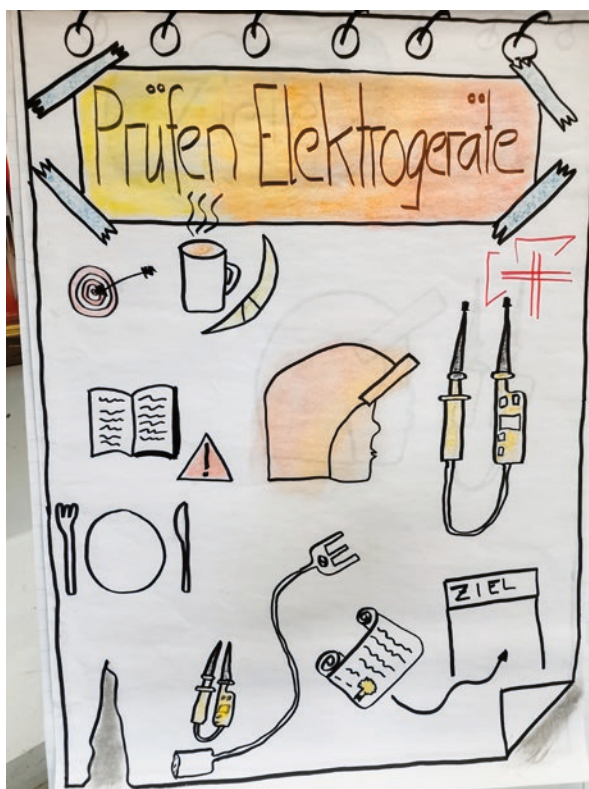 Prüfen Elektrogeräte
!
ZIEL